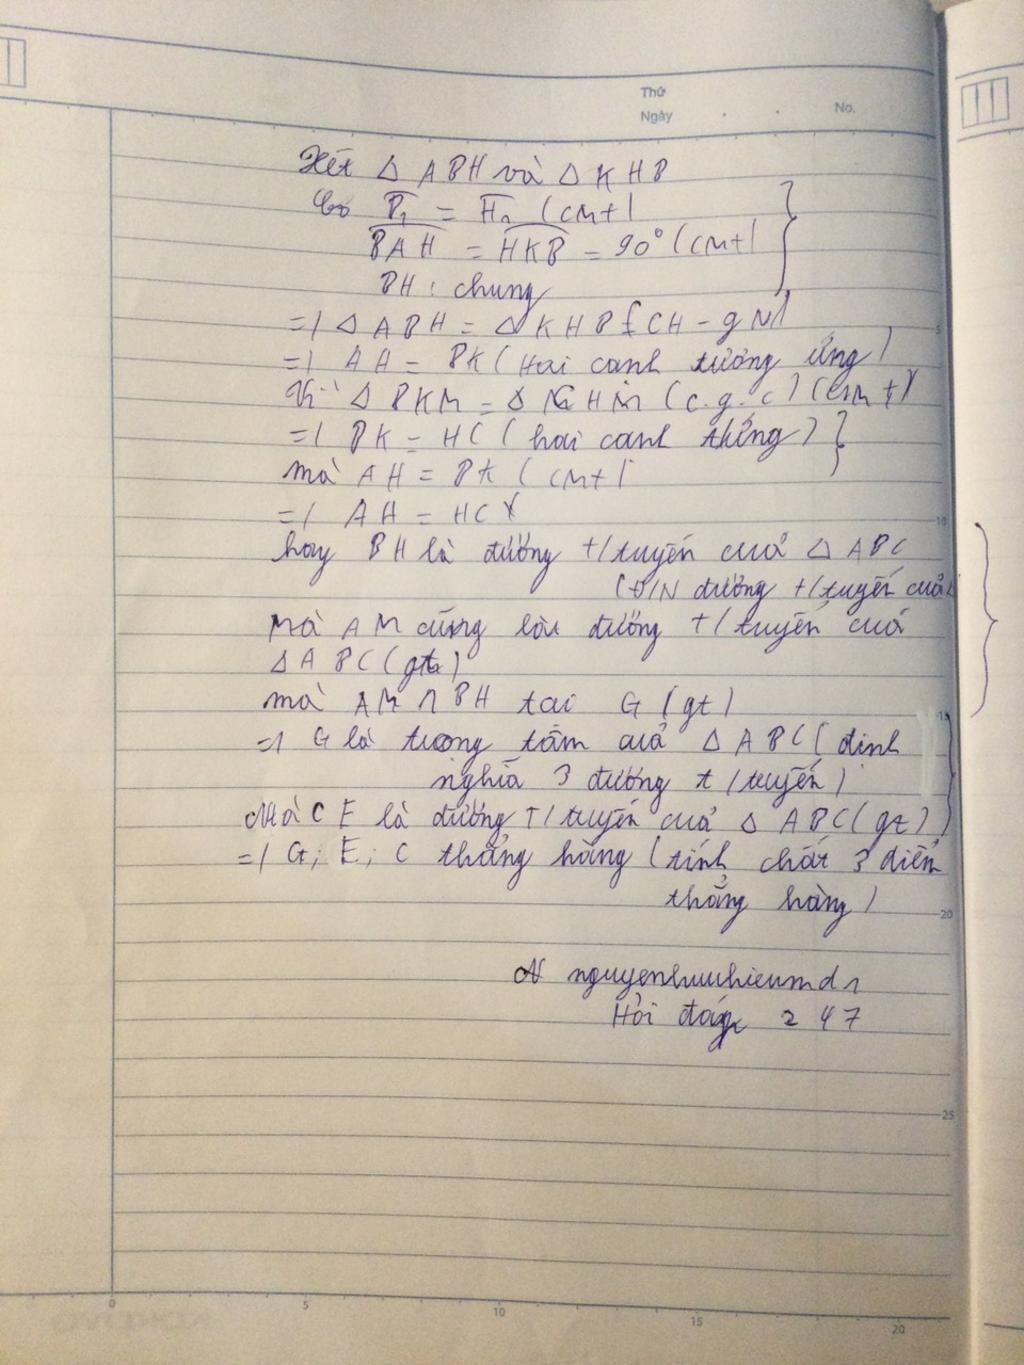 Thứ
Ngày
No.
Xét Δ ABH và Δ KHB
Có B₁ = H₂ (cmt)
BAH = HKB = 90° (cmt)
BH : chung
=) Δ ABH = Δ KHB (CH - gN)
=) AH = BK (Hai cạnh tương ứng)
Vì Δ BKM = Δ CHM (c.g.c) (cmt)
=) BK = HC (hai cạnh tứng)
mà AH = BK (cmt)
=) AH = HC
hay BH là đường t/tuyến của Δ ABC
(Đ/N đường t/tuyến của Δ
Mà AM cũng là đường t/tuyến của
Δ ABC (gt)
mà AM ∩ BH tại G (gt)
=) G là trọng tâm của Δ ABC (định
nghĩa 3 đường t/tuyến)
Mà CE là đường T/tuyến của Δ ABC (gt)
=) G; E; C thẳng hàng (tính chất 3 điểm
thẳng hàng)
nguyenluuhieumd1
Hỏi đáp 247
5
10
15
20
25
0 5 10 15 20